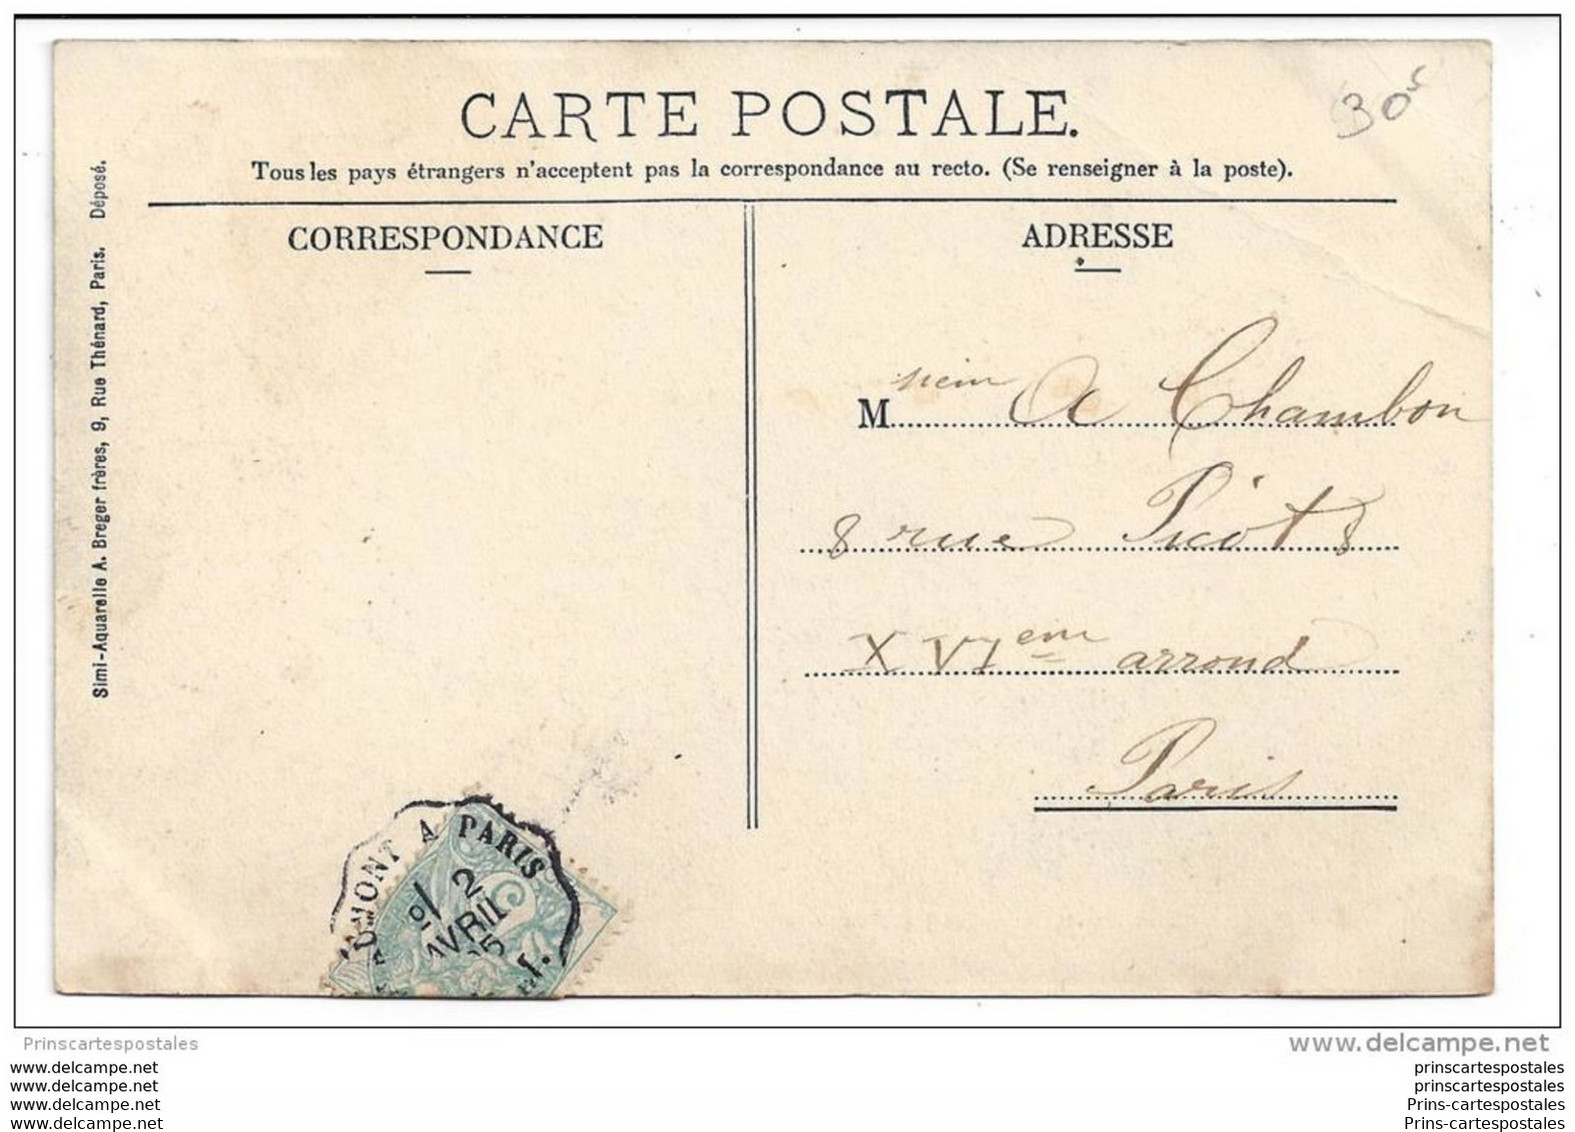 CARTE POSTALE.
30
Tous les pays étrangers n'acceptent pas la correspondance au recto. (Se renseigner à la poste).
CORRESPONDANCE
ADRESSE
Simi-Aquarelle A. Breger frères, 9, Rue Thénard, Paris. Déposé.
M A Chambon
8 rue Picot 8
XVIem arrond
Paris
MONT A PARIS
2
AVRIL
05
Prinscartespostales
www.delcampe.net
www.delcampe.net
www.delcampe.net
www.delcampe.net
www.delcampe.net
prinscartespostales
prinscartespostales
Prins-cartespostales
Prins-cartespostales